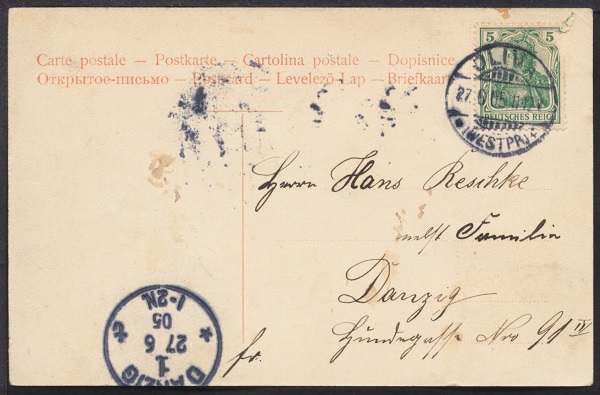 Carte postale — Postkarte — Cartolina postale — Dopisnice
Открытое-письмо — Postcard — Levelező-Lap — Briefkaart
5 5
DEUTSCHES REICH
OLIVA
27.6.05
(WESTPR)
Herrn Hans Reschke
nebst Familie
Danzig
Hundegasse Nro 91 IV
fr.
DANZIG
1
27 6
05
1-2N.